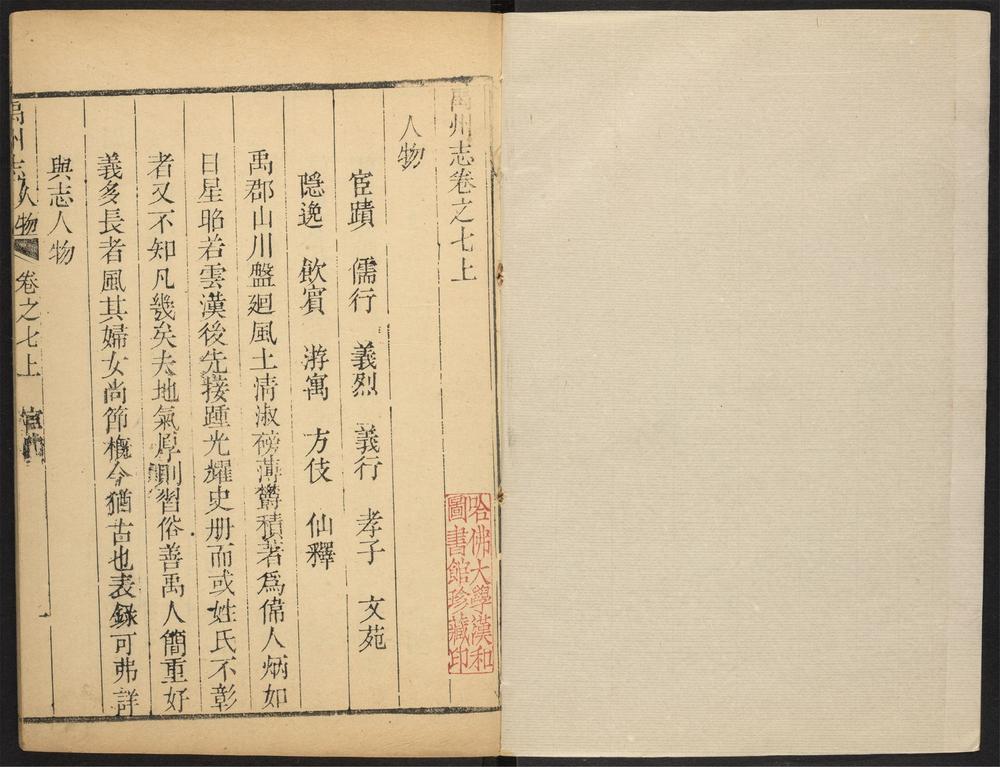 禹州志卷之七上
人物
宦蹟　儒行　義烈　義行　孝子　文苑
隱逸　飲賓　游寓　方伎　仙釋
禹郡山川盤迴風土清淑磅薄欝積著爲偉人炳如
日星昭若雲漢後先接踵光耀史册而或姓氏不彰
者又不知凡幾矣夫地氣厚則習俗善禹人簡重好
義多長者風其婦女尚節槪今猶古也表錄可弗詳
與志人物
禹州志 人物 卷之七上
哈佛大學漢和
圖書館珍藏印